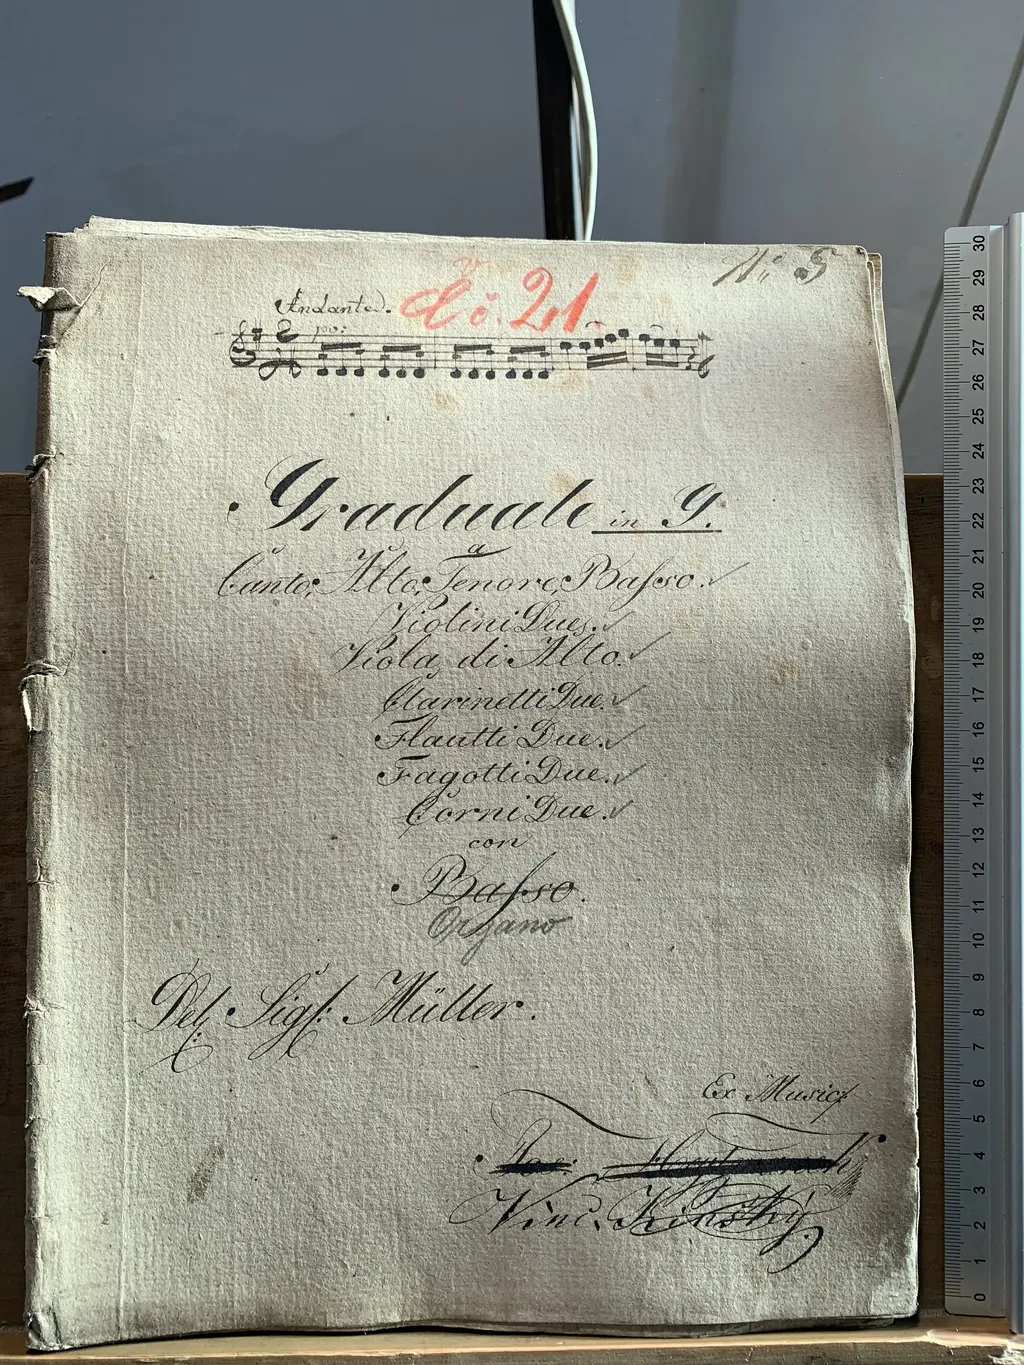 Nº 5
Č. 21.
Andante.
po:
Graduale in G.
a
Canto, Alto, Tenore, Basso.
Violini Due.
Viola di Alto.
Clarinetti Due.
Flautti Due.
Fagotti Due.
Corni Due.
con
Basso.
Organo
Del: Sigf: Müller.
Ex Music:
Vinc. Kinský.
30
29
28
27
26
25
24
23
22
21
20
19
18
17
16
15
14
13
12
11
10
9
8
7
6
5
4
3
2
1
0